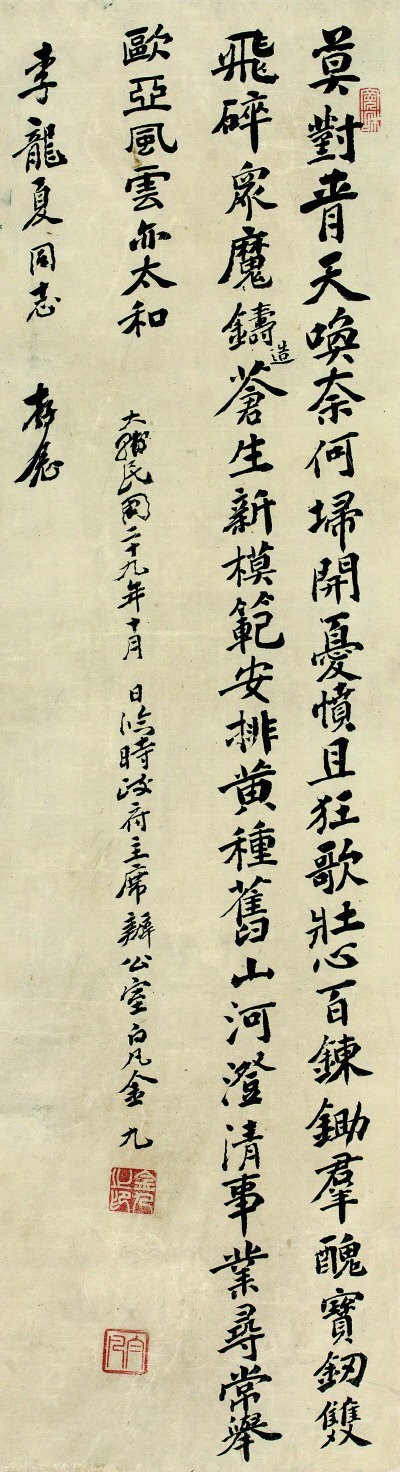 莫對青天喚奈何埽開憂憤且狂歌壯心百鍊鋤羣醜寶釰雙
飛碎衆魔鑄造蒼生新模範安排黄種舊山河澄清事業尋常舉
歐亞風雲亦太和
大韓民國二十九年十月 日臨時政府主席辦公室白凡金九
金九之印
白凡
李龍夏同志 存念